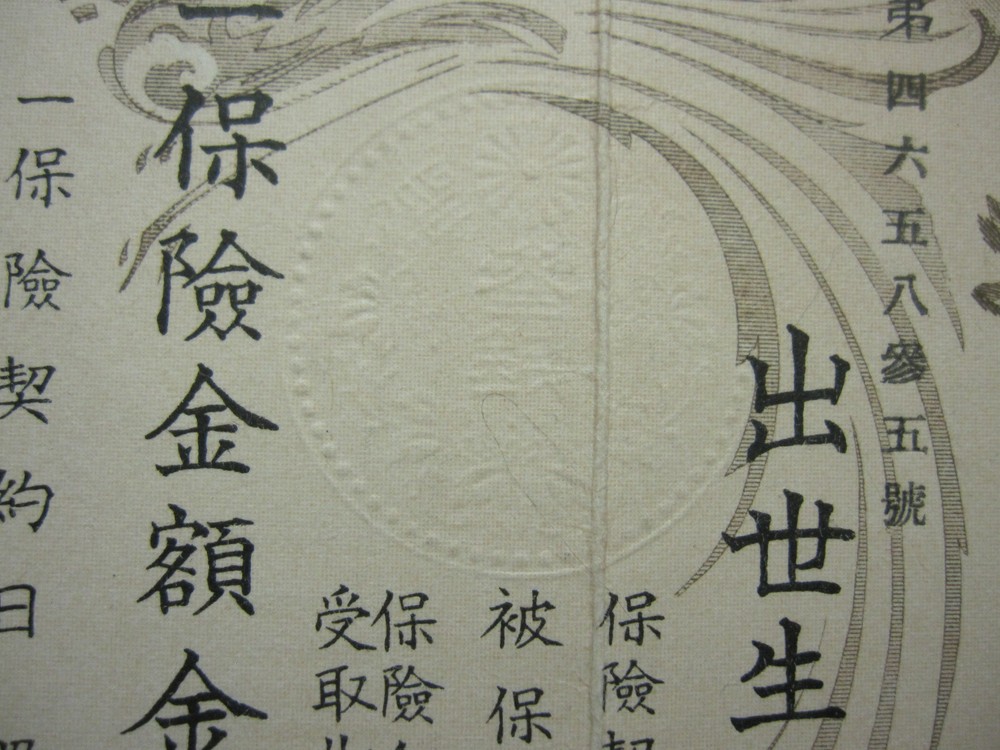 第四六五八參五號
出世生
保險契
被保
保險金
受取
一保險金額金
一保險契約日